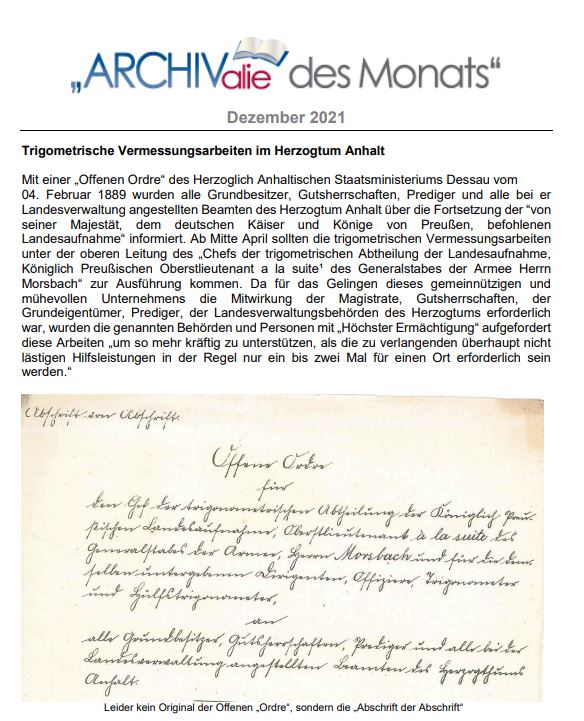 „ARCHIValie des Monats“
Dezember 2021
Trigometrische Vermessungsarbeiten im Herzogtum Anhalt
Mit einer „Offenen Ordre“ des Herzoglich Anhaltischen Staatsministeriums Dessau vom
04. Februar 1889 wurden alle Grundbesitzer, Gutsherrschaften, Prediger und alle bei er
Landesverwaltung angestellten Beamten des Herzogtum Anhalt über die Fortsetzung der “von
seiner Majestät, dem deutschen Käiser und Könige von Preußen, befohlenen
Landesaufnahme“ informiert. Ab Mitte April sollten die trigometrischen Vermessungsarbeiten
unter der oberen Leitung des „Chefs der trigometrischen Abtheilung der Landesaufnahme,
Königlich Preußischen Oberstlieutenant a la suite¹ des Generalstabes der Armee Herrn
Morsbach“ zur Ausführung kommen. Da für das Gelingen dieses gemeinnützigen und
mühevollen Unternehmens die Mitwirkung der Magistrate, Gutsherrschaften, der
Grundeigentümer, Prediger, der Landesverwaltungsbehörden des Herzogtums erforderlich
war, wurden die genannten Behörden und Personen mit „Höchster Ermächtigung“ aufgefordert
diese Arbeiten „um so mehr kräftig zu unterstützen, als die zu verlangenden überhaupt nicht
lästigen Hilfsleistungen in der Regel nur ein bis zwei Mal für einen Ort erforderlich sein
werden.“
Abschrift von Abschrift.
Offene Ordre
für
den Chef der trigonometrischen Abtheilung der Königlich Preu-
ßischen Landesaufnahme, Oberstlieutenant à la suite des
Generalstabes der Armee, Herrn Morsbach und für die dem-
selben untergebenen Dirigenten, Offiziere, Trigonometer
und Hülfstrigonometer,
an
alle Grundbesitzer, Gutsherrschaften, Prediger und alle bei der
Landesverwaltung angestellten Beamten des Herzogthums
Anhalt.
Leider kein Original der Offenen „Ordre“, sondern die „Abschrift der Abschrift“